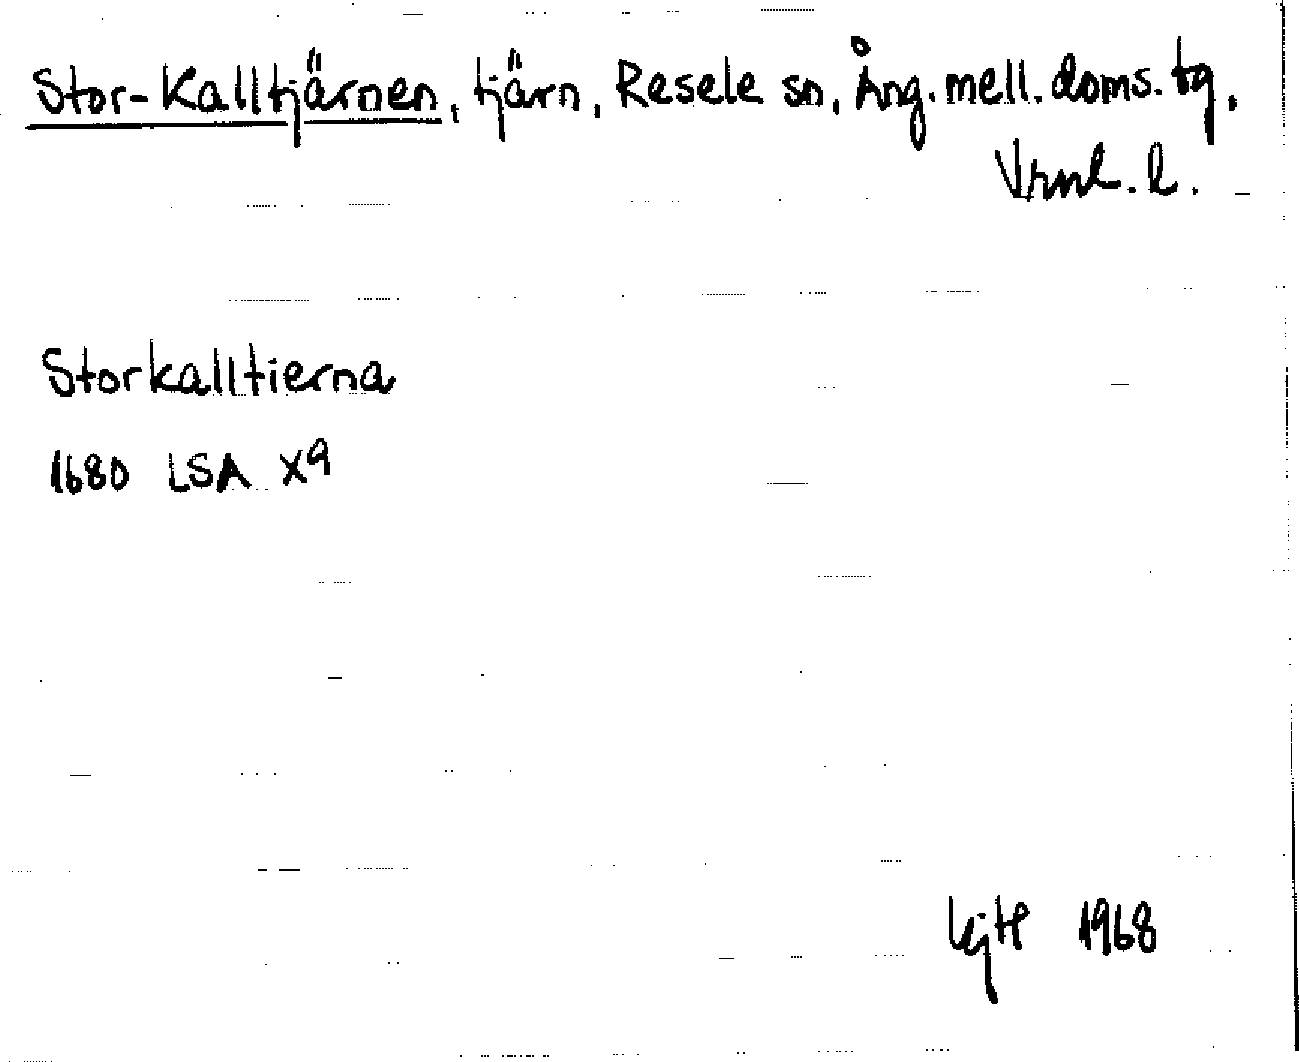 Stor-Kalltjärnen, tjärn, Resele sn, Ång. mell. doms. tg.
Vrnl. l.
Storkalltierna
1680 LSA X9
1968